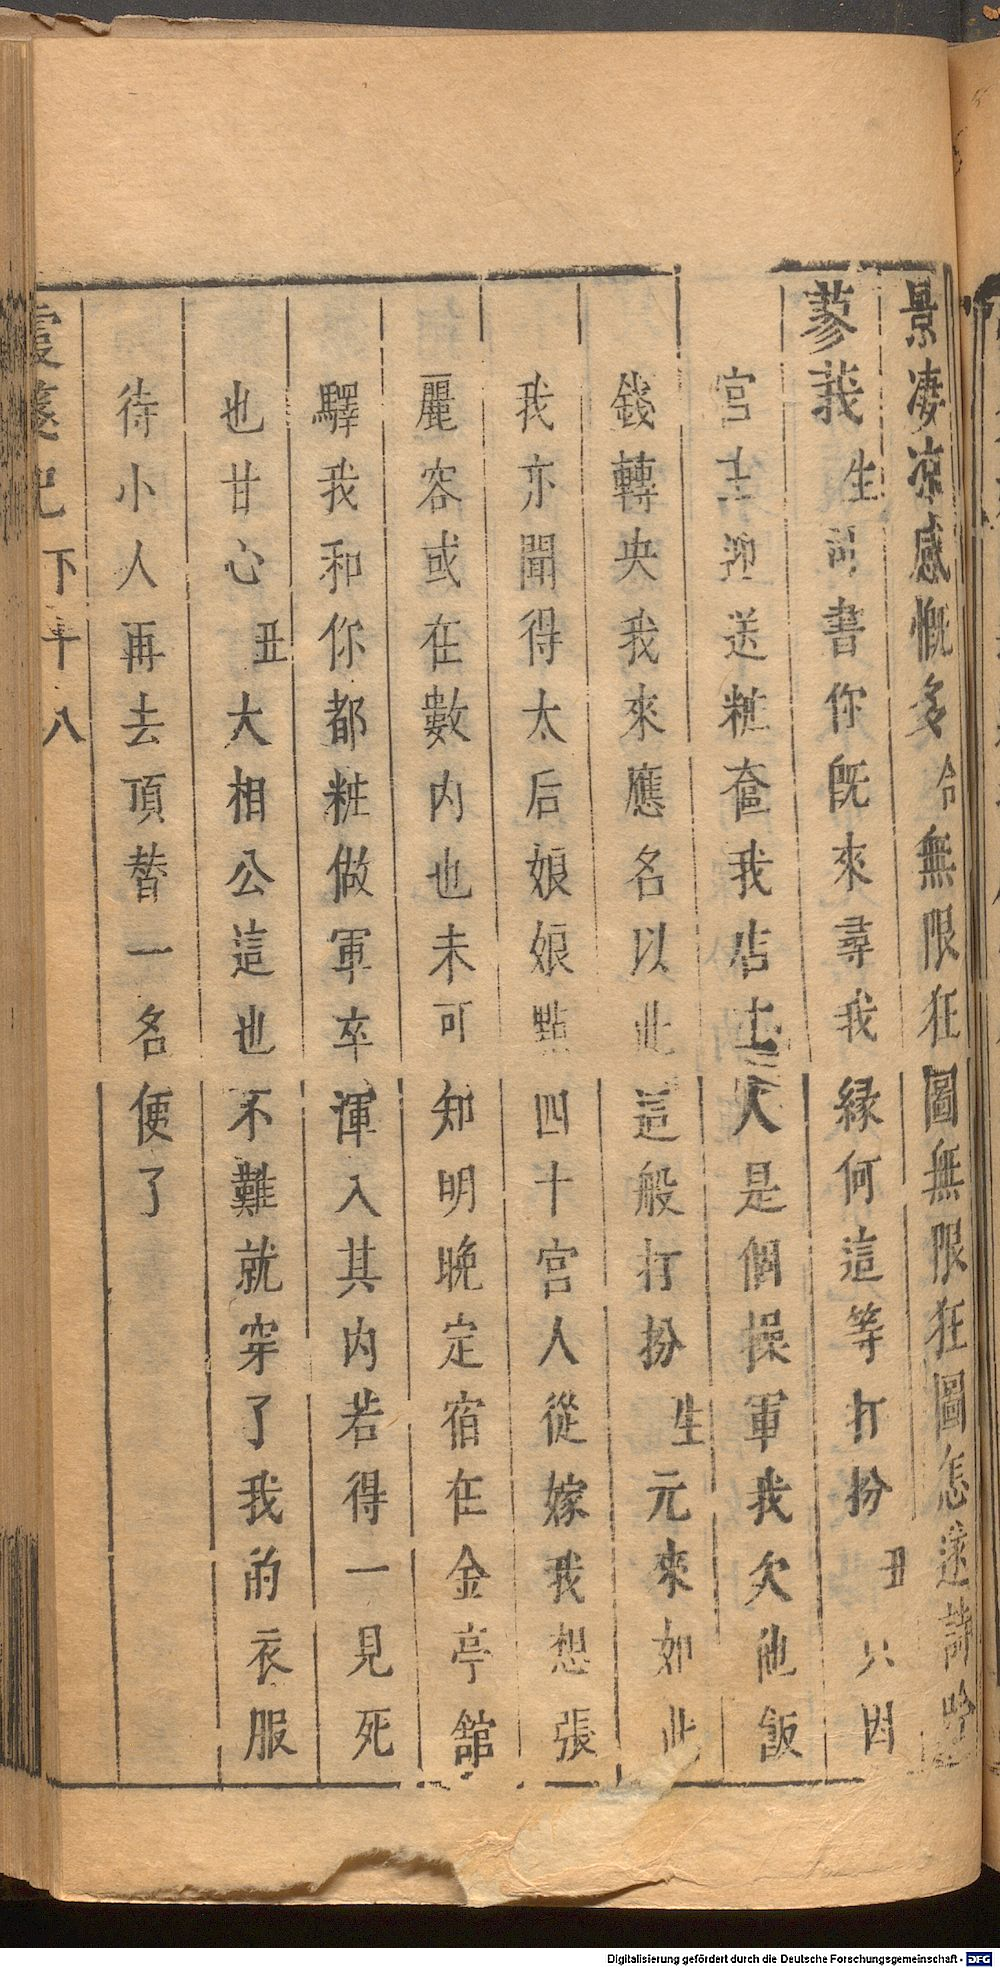 景凄凉感慨多 合無限狂圖無限狂圖怎遂詩吟
蓼莪 生 書你旣來尋我緣何這等打扮 丑 只因
宮主迎送粧奩我店主人是個操軍我欠他飯
錢轉央我來應名以此這般打扮 生 元來如此
我亦聞得太后娘娘點四十宮人從嫁我想張
麗容或在數內也未可知明晚定宿在金亭舘
驛我和你都粧做軍卒渾入其內若得一見死
也甘心 丑 大相公這也不難就穿了我的衣服
待小人再去頂替一名便了
霞箋記 下 十八
Digitalisierung gefördert durch die Deutsche Forschungsgemeinschaft - DFG